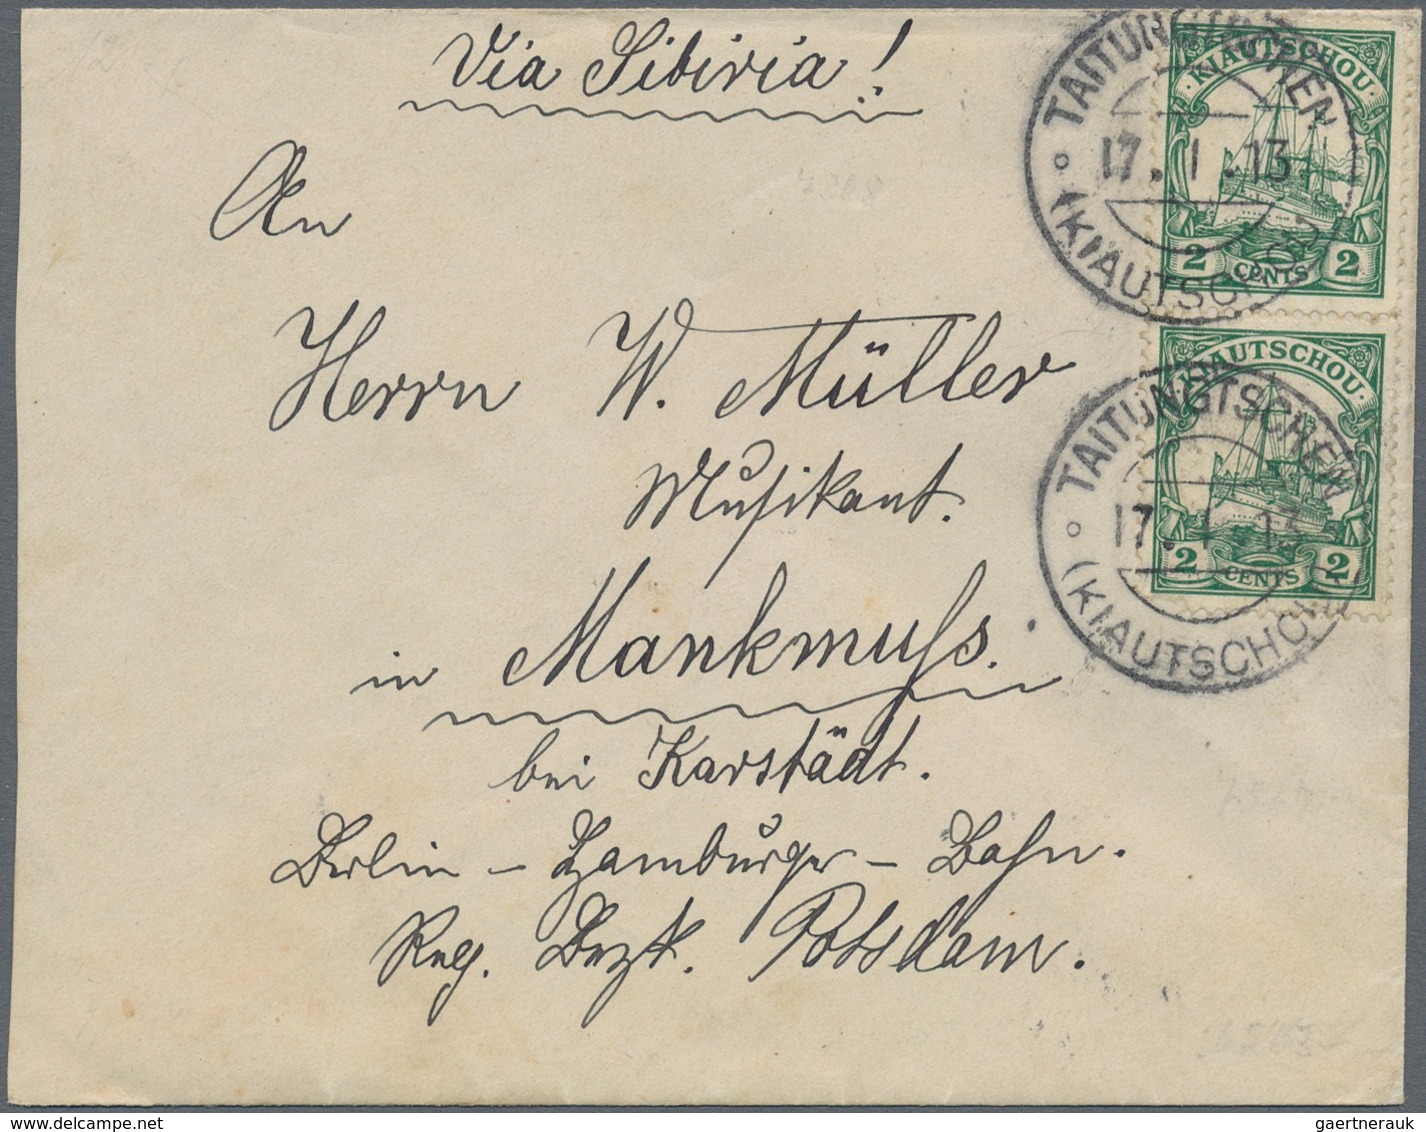 Via Sibiria!
An
Herrn W. Müller
Musikant.
in Mankmuss.
bei Karstädt.
Berlin - Hamburger - Bahn.
Reg. Bezk. Potsdam.
KIAUTSCHOU
2 CENTS 2
TAITUNGTSCHEN
17.1.13
(KIAUTSCHOU)
KIAUTSCHOU
2 CENTS 2
TAITUNGTSCHEN
17.1.13
(KIAUTSCHOU)
www.delcampe.net
gaertnerauk